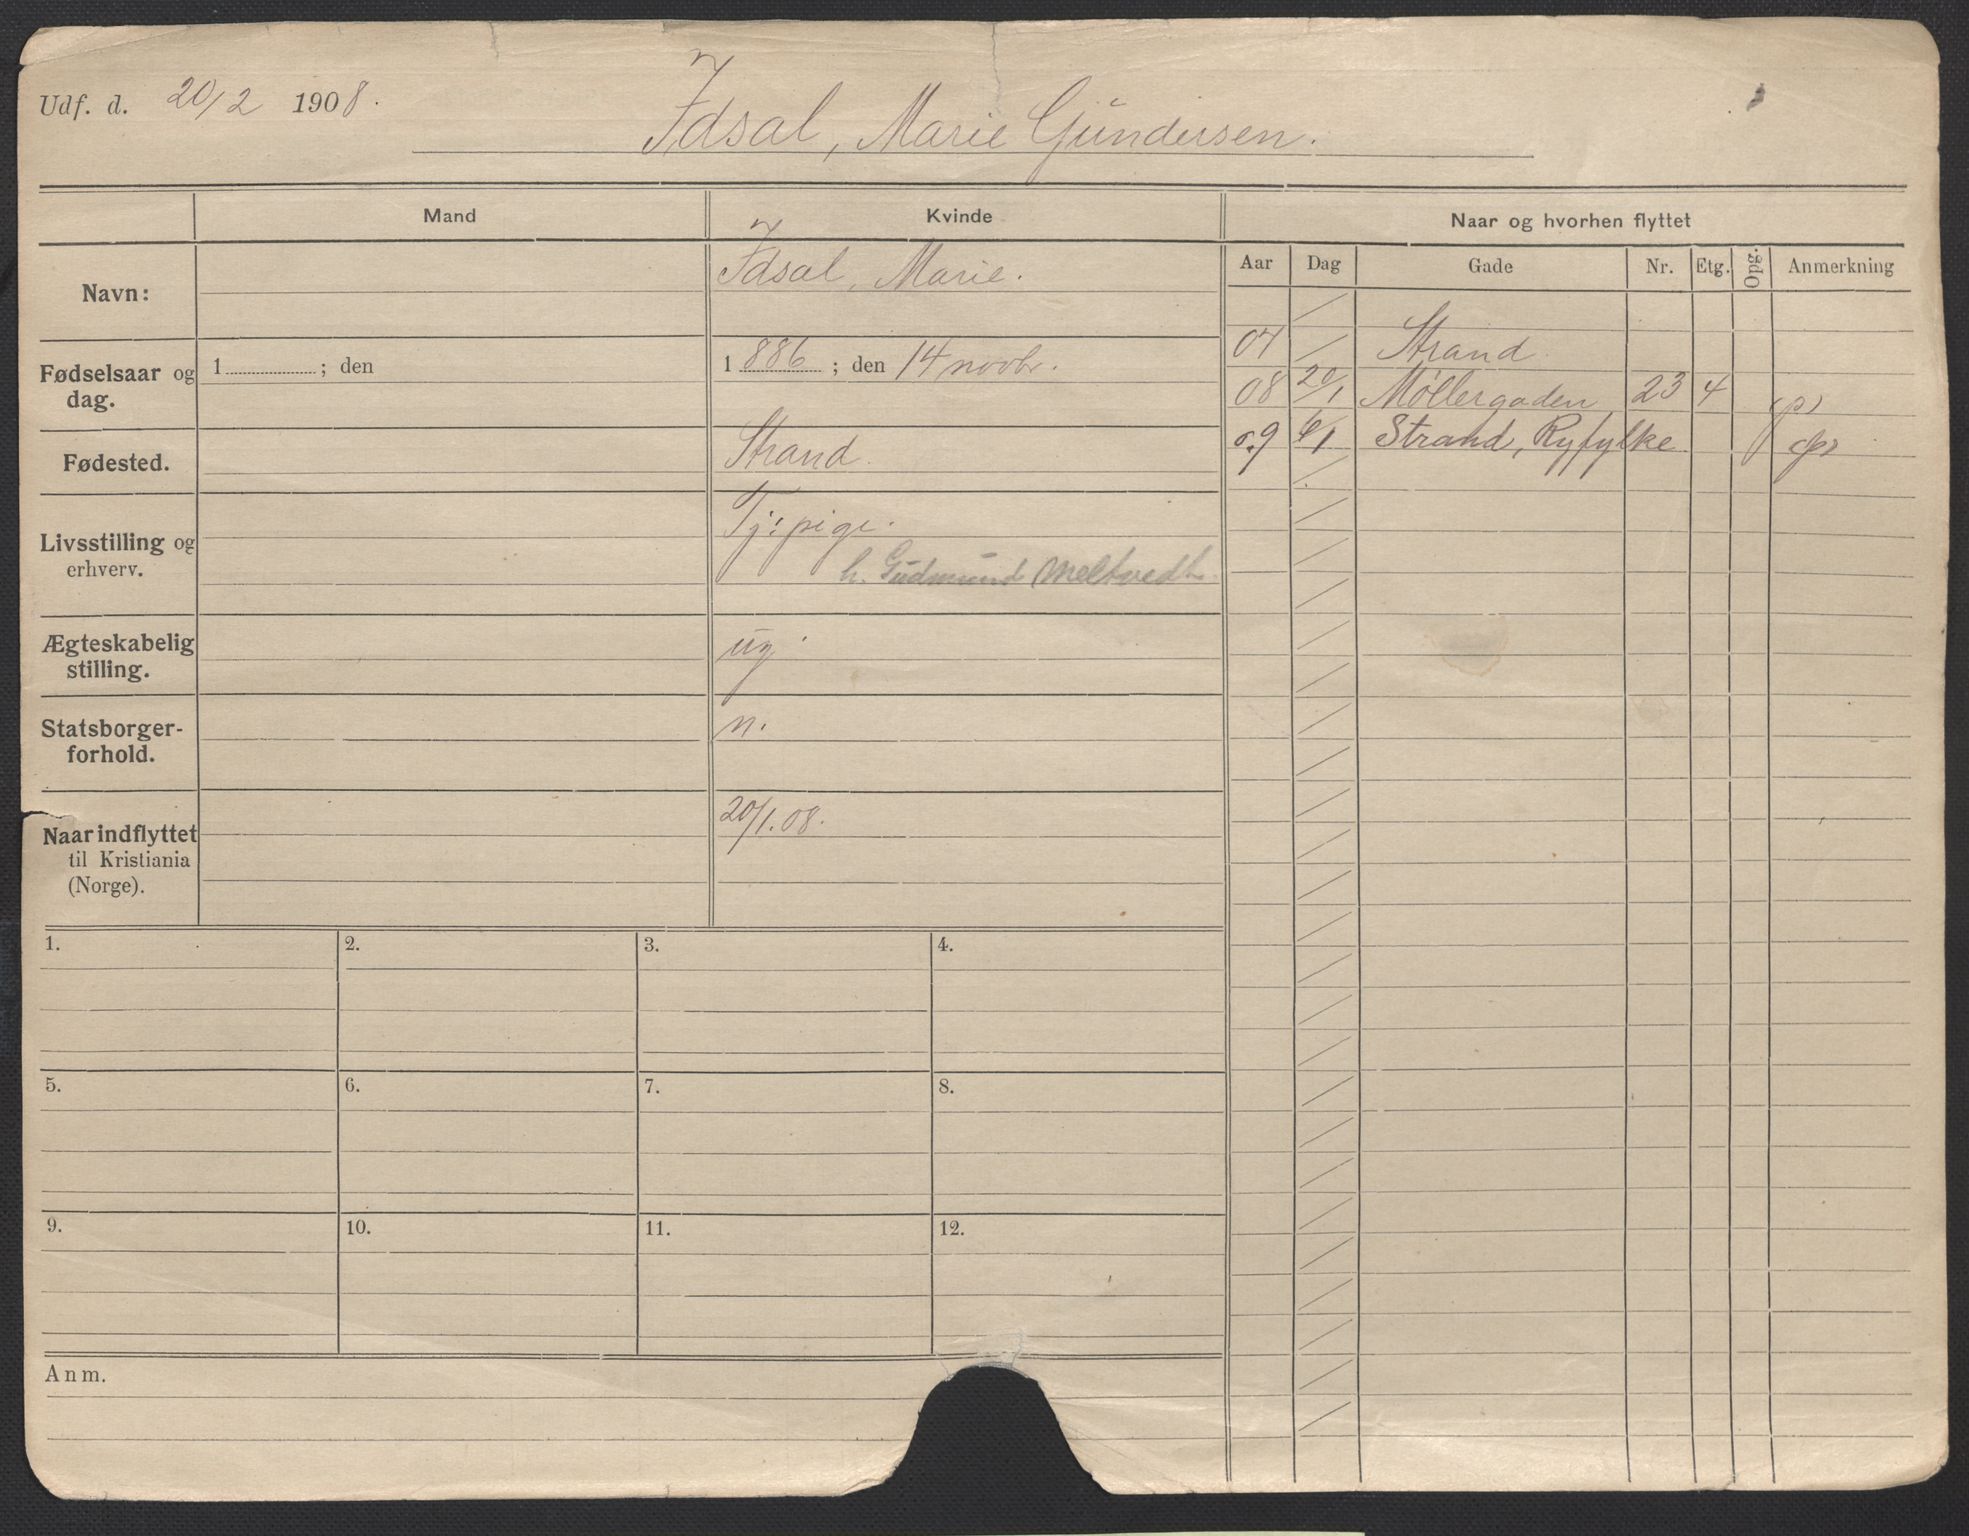 Udf. d. 20/2 1908.
Idsal, Marie Gundersen.
Mand
Kvinde
Naar og hvorhen flyttet
Navn:
Idsal, Marie.
Fødselsaar og dag.
1 ; den
1 886 ; den 14 novbr.
Fødested.
Strand.
Livsstilling og erhverv.
Tj: pige.
h. Gudmund Meltvedt
Ægteskabelig stilling.
ug.
Statsborger-
forhold.
n.
Naar indflyttet
til Kristiania
(Norge).
20/1.08.
Aar Dag Gade Nr. Etg. Opg. Anmerkning
07 Strand
08 20/1 Møllergaden 23 4 (p)
09 6/1 Strand, Ryfylke
1. 2. 3. 4.
5. 6. 7. 8.
9. 10. 11. 12.
Anm.